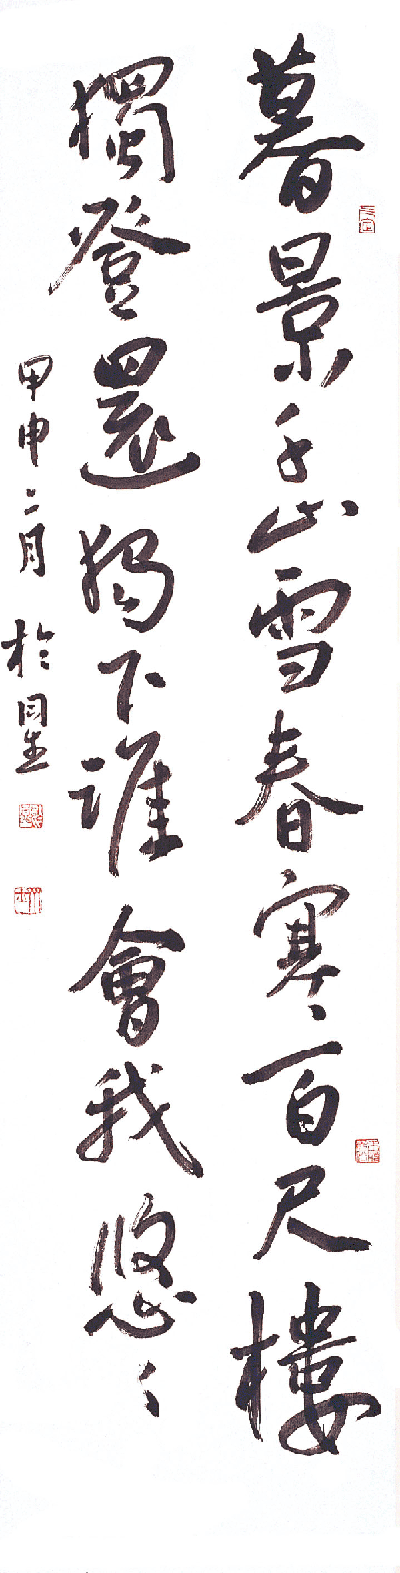 暮景千山雪春寒百尺樓
獨登還獨下誰會我悠〻
甲申二月於